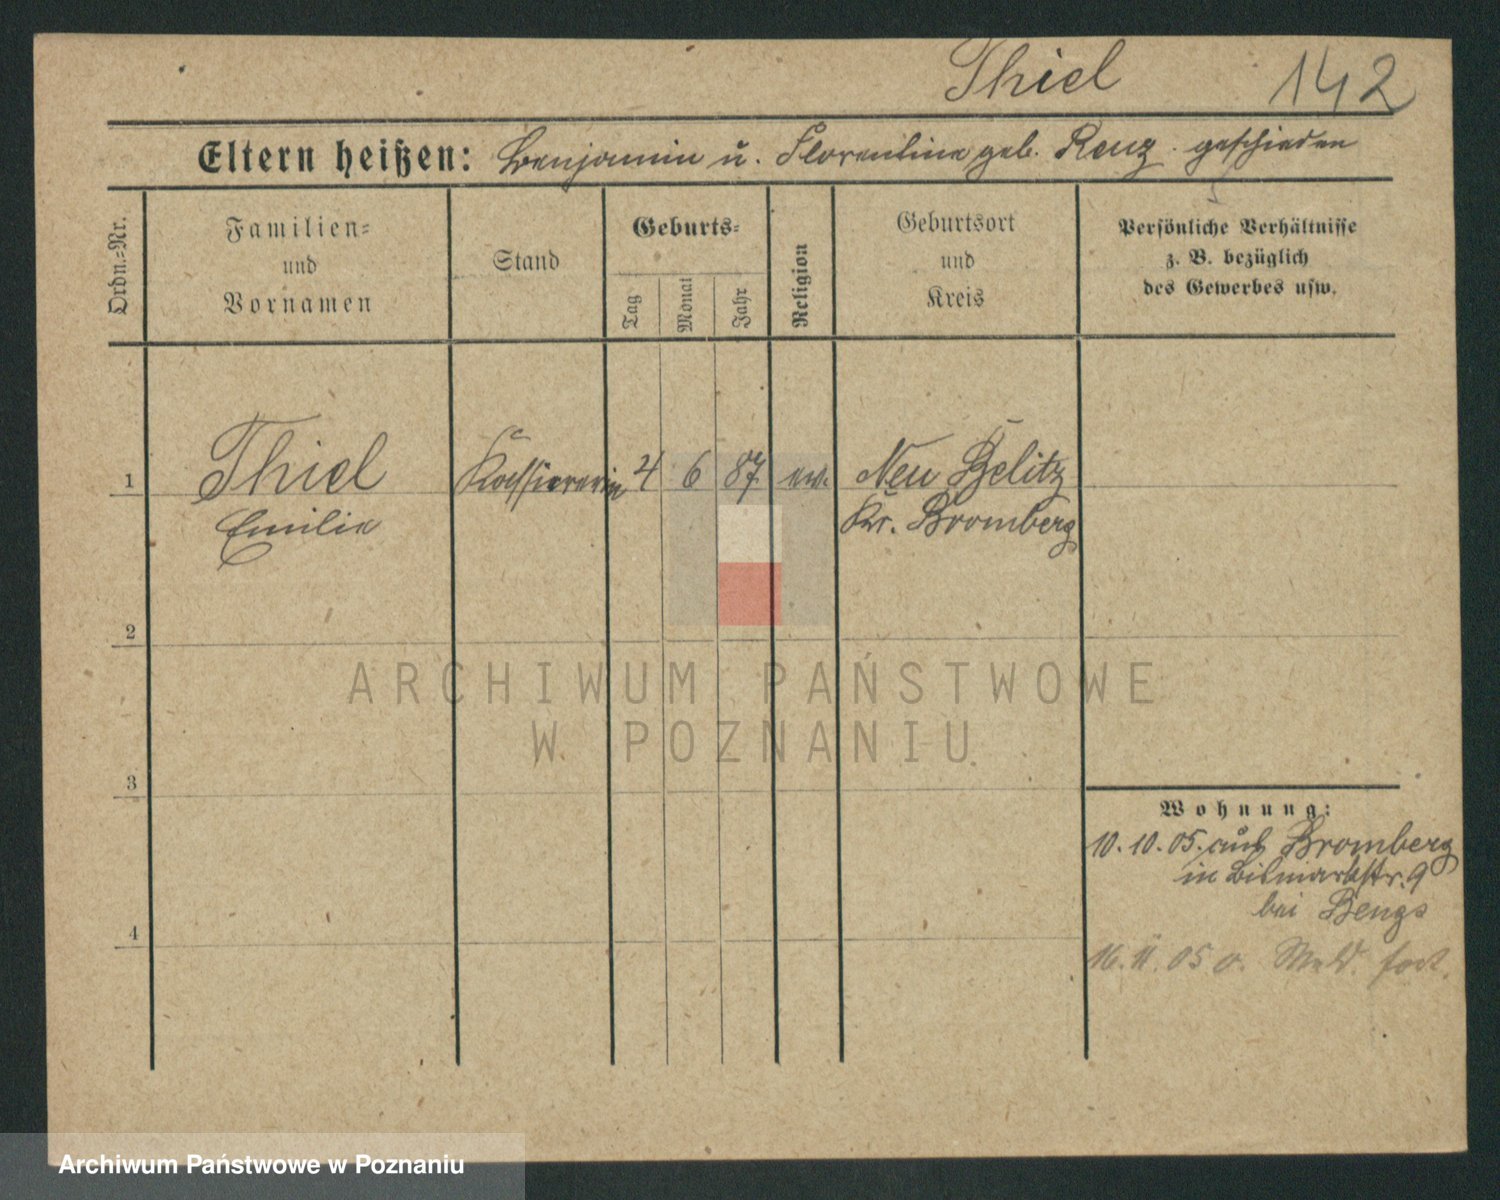 Thiel 142
Eltern heißen: Benjamin u. Florentine geb. Renz. geschieden
Ordn.=Nr.
Familien=
und
Vornamen
Stand
Geburts=
Tag
Monat
Jahr
Religion
Geburtsort
und
Kreis
Persönliche Verhältnisse
z. B. bezüglich
des Gewerbes usw.
1 Thiel Kassiererin 4 6 87 ev. Neu Belitz
Emilie Kr. Bromberg
2
3
4
Wohnung:
10. 10. 05. aus Bromberg
in Bismarkstr. 9
bei Bengs
16. 11. 05 o. Meld. fort.
ARCHIWUM PAŃSTWOWE
W POZNANIU
Archiwum Państwowe w Poznaniu